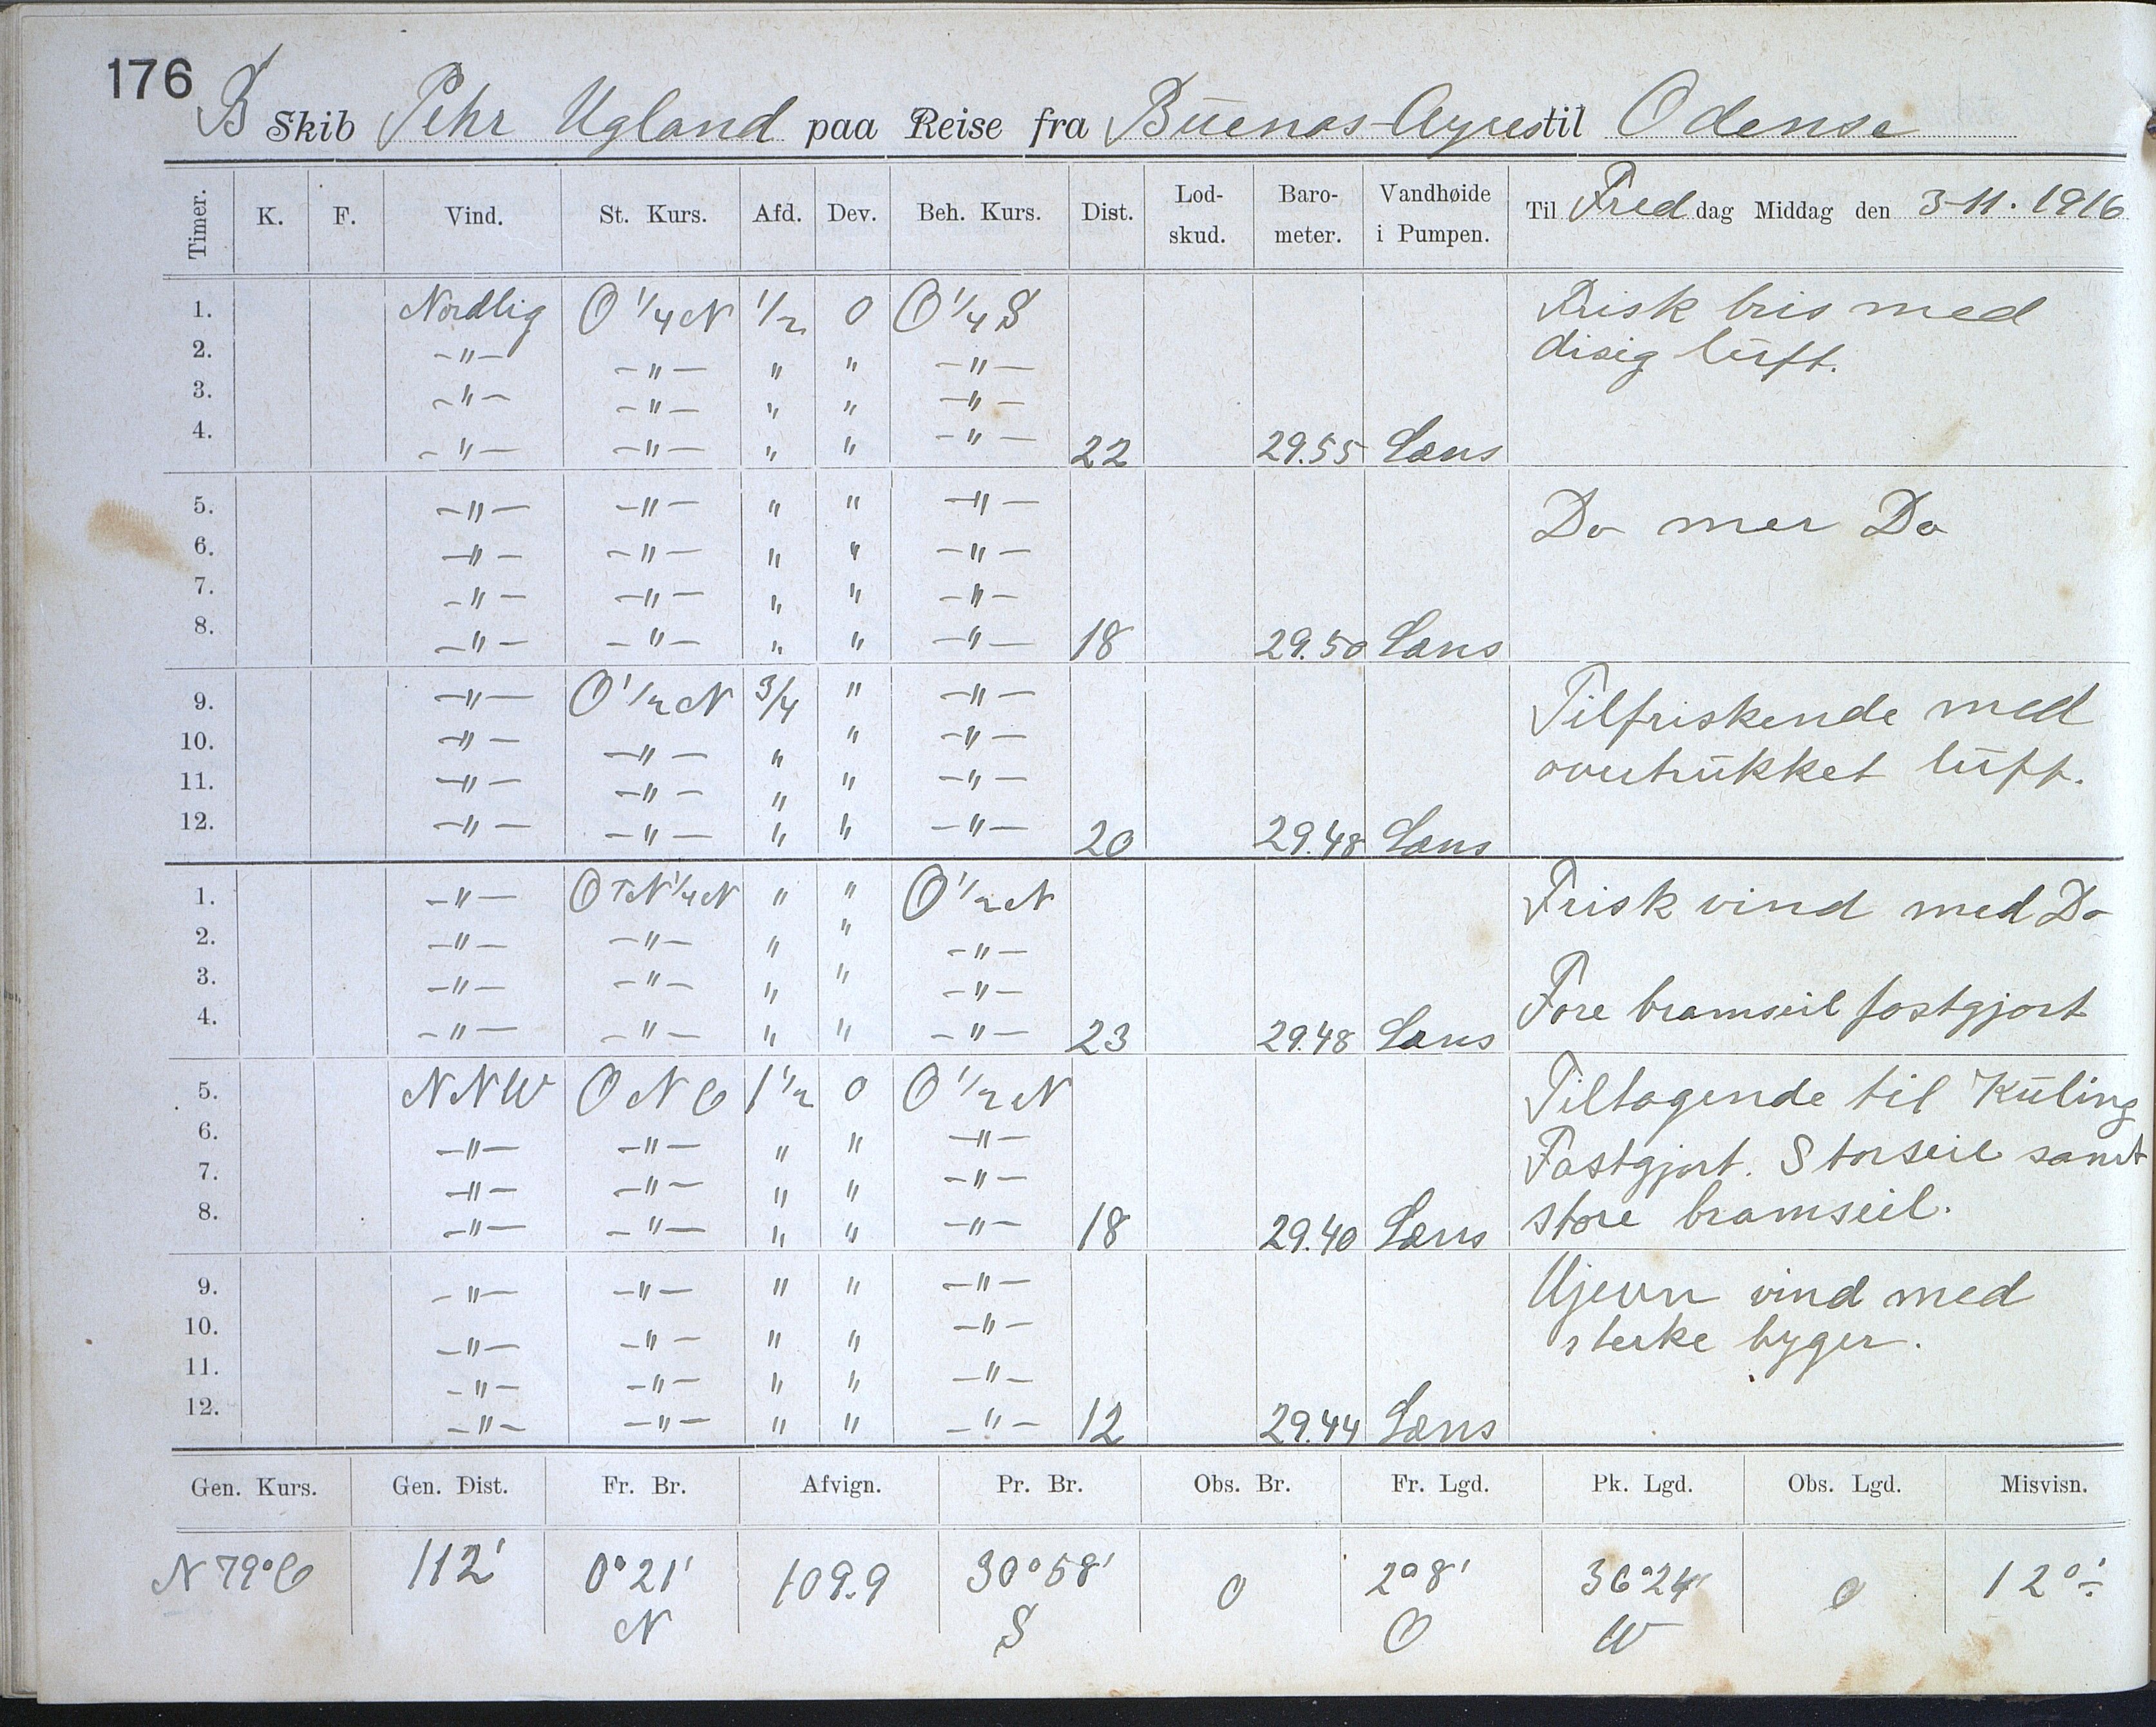 176
B Skib Pehr Ugland paa Reise fra Buenos-Ayres til Odense
Timer. K. F. Vind. St. Kurs. Afd. Dev. Beh. Kurs. Dist. Lod-skud. Baro-meter. Vandhøide i Pumpen. Til Freddag Middag den 3-11.1916
1. Nordlig O 1/4 N 1/2 0 O 1/4 S Frisk bris med
2. -"- -"- " " -"- disig lüft.
3. -"- -"- " " -"-
4. -"- -"- " " -"- 22 29.55 Læns
5. -"- -"- " " -"- Do mer Do
6. -"- -"- " " -"-
7. -"- -"- " " -"-
8. -"- -"- " " -"- 18 29.50 Læns
9. -"- O 1/2 N 3/4 " -"- Tilfriskende med
10. -"- -"- " " -"- overtrükket lüft.
11. -"- -"- " " -"-
12. -"- -"- " " -"- 20 29.48 Læns
1. -"- OTN 1/4 N " " O 1/2 N Frisk vind med Do
2. -"- -"- " " -"-
3. -"- -"- " " -"- Fore bramseil fastgjort
4. -"- -"- " " -"- 23 29.48 Læns
5. NNW ONO 1 1/2 0 O 1/2 N Tiltagende til Küling
6. -"- -"- " " -"- Fastgjort. Storseil samt
7. -"- -"- " " -"- store bramseil.
8. -"- -"- " " -"- 18 29.40 Læns
9. -"- -"- " " -"- Ujevn vind med
10. -"- -"- " " -"- sterke byger.
11. -"- -"- " " -"-
12. -"- -"- " " -"- 12 29.44 Læns
Gen. Kurs. Gen. Dist. Fr. Br. Afvign. Pr. Br. Obs. Br. Fr. Lgd. Pk. Lgd. Obs. Lgd. Misvisn.
N 79° O 112' 0°21' 109.9 30°58' 0 2°8' 36°24' 0 12°
N S O W